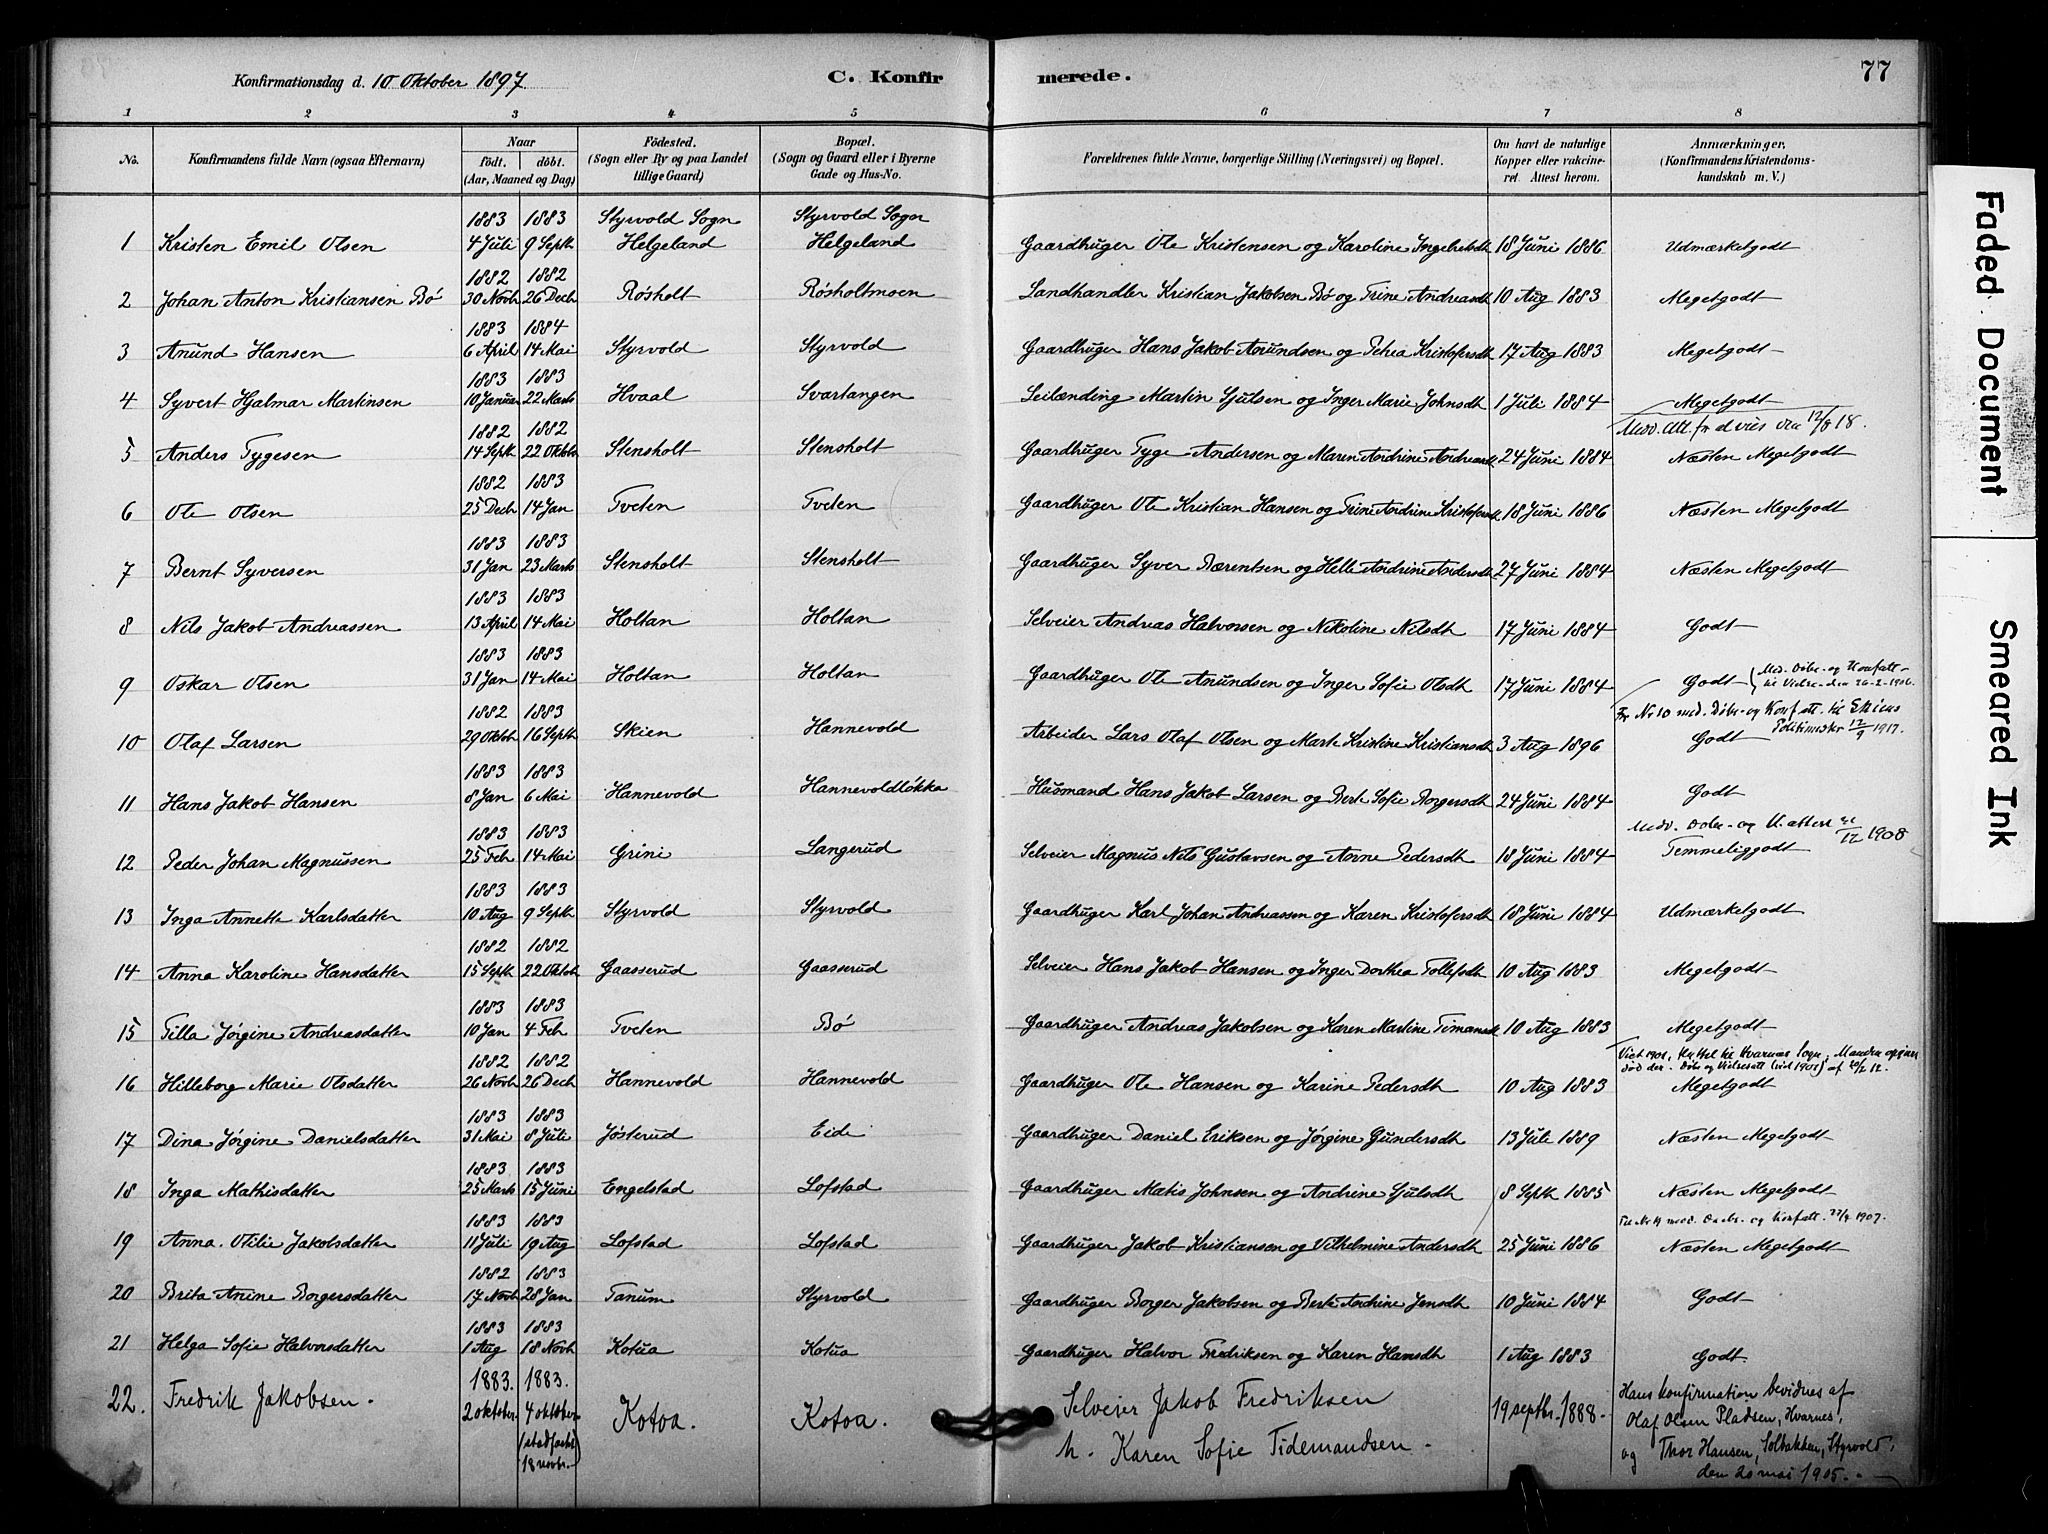 Konfirmationsdag d. 10 Oktober 1897
C. Konfirmerede.
77
1 2 3 4 5 6 7 8
No. | Konfirmandens fulde Navn (ogsaa Efternavn) | Naar født. døbt. (Aar, Maaned og Dag) | Fødested. (Sogn eller By og paa Landet tillige Gaard) | Bopæl. (Sogn og Gaard eller i Byerne Gade og Hus-No. | Forældrenes fulde Navne, borgerlige Stilling (Næringsvei) og Bopæl. | Om havt de naturlige Kopper eller vakcineret. Attest herom. | Anmærkninger. (Konfirmandens Kristendomskundskab m. V.)
1 Kristen Emil Olsen 1883 4 Juli 1883 9 Septb Styrvold Sogn Helgeland Styrvold Sogn Helgeland Gaardbruger Ole Kristensen og Karoline Ingebretsdt 18 Juni 1886 Udmærketgodt
2 Johan Anton Kristiansen Bö 1882 30 Novb 1882 26 Decb Rösholt Rösholtmoen Landhandler Kristian Jakobsen Bö og Trine Andreasdt 10 Aug 1883 Megetgodt
3 Anund Hansen 1883 6 April 1884 14 Mai Styrvold Styrvold Gaardbruger Hans Jakob Anundsen og Petrea Kristofersdt 17 Aug 1883 Megetgodt
4 Syvert Hjalmar Martinsen 1883 10 Januar 1883 22 Marts Hvaal Svartangen Leilænding Martin Gjulsen og Inger Marie Johnsdt 1 Juli 1884 Megetgodt
5 Anders Tygesen 1882 14 Septb 1882 22 Oktbr Stensholt Stensholt Gaardbruger Tyge Andersen og Maren Andrine Andreasdt 24 Juni 1884 Næsten Megetgodt
6 Ole Olsen 1882 25 Decb 1883 14 Jan Tveten Tveten Gaardbruger Ole Kristian Hansen og Trine Andrine Kristofersdt 18 Juni 1886 Næsten Megetgodt
7 Bernt Syversen 1883 31 Jan 1883 23 Marts Stensholt Stensholt Gaardbruger Syver Bærentsen og Helle Andrine Andersdt 27 Juni 1884 Næsten Megetgodt
8 Nils Jakob Andreassen 1883 13 April 1883 14 Mai Holtan Holtan Selveier Andreas Halvorsen og Nikoline Nilsdt 17 Juni 1884 Godt
9 Oskar Olsen 1883 31 Jan 1883 14 Mai Holtan Holtan Gaardbruger Ole Anundsen og Inger Sofie Olsdt 17 Juni 1884 Godt
Med. Döbe- og Konfatt- til Vielse den 26-2-1906.
For No 10 med. Döbe- og Konf att. til Skiens Politimester 12/9 1917.
10 Olaf Larsen 1882 29 Oktob 1883 16 Septb Skien Hannevold Arbeider Lars Olaf Olsen og Marte Kristine Kristiansdt 3 Aug 1896 Godt
11 Hans Jakob Hansen 1883 8 Jan 1883 6 Mai Hannevold Hannevoldløkka Husmand Hans Jakob Larsen og Berte Sofie Borgersdt 24 Juni 1884 Godt
12 Peder Johan Magnussen 1883 25 Feb 1883 14 Mai Grini Langerud Selveier Magnus Nils Gustavsen og Anne Pedersdt 18 Juni 1884 Temmeliggodt
13 Inga Annette Karlsdatter 1883 10 Aug 1883 9 Septb Styrvold Styrvold Gaardbruger Karl Johan Andreassen og Karen Kristofersdt 18 Juni 1884 Udmærketgodt
14 Anna Karoline Hansdatter 1882 15 Septb 1882 22 Oktob Gaasserud Gaasserud Selveier Hans Jakob Hansen og Inger Dorthea Tollefsdt 10 Aug 1883 Megetgodt
15 Tilla Jörgine Andreasdatter 1883 10 Jan 1883 4 Feb Tveten Bö Gaardbruger Andreas Jakobsen og Karen Martine Timansdt 10 Aug 1883 Megetgodt
16 Hilleborg Marie Olsdatter 1882 26 Novb 1882 26 Decb Hannevold Hannevold Gaardbruger Ole Hansen og Karine Pedersdt 10 Aug 1883 Megetgodt
17 Dina Jörgine Danielsdatter 1883 31 Mai 1883 8 Juli Jösterud Eide Gaardbruger Daniel Eriksen og Jörgine Gundersdt 13 Juli 1889 Næsten Megetgodt
18 Inga Mathisdatter 1883 25 Marts 1883 15 Juni Engelstad Lofstad Gaardbruger Matis Johnsen og Andrine Gjulsdt 8 Septb 1885 Næsten Megetgodt
19 Anna Otilie Jakobsdatter 1883 11 Juli 1883 19 Aug Lofstad Lofstad Gaardbruger Jakob Kristiansen og Vilhelmine Andersdt 25 Juni 1886 Næsten Megetgodt
20 Brita Anine Borgersdatter 1882 17 Novb 1883 28 Jan Tanum Styrvold Gaardbruger Borger Jakobsen og Berte Andrine Jensdt 10 Juni 1884 Godt
21 Helga Sofie Halvorsdatter 1883 1 Aug 1883 18 Novb Kotua Kotua Gaardbruger Halvor Fredriksen og Karen Hansdt 1 Aug 1883 Godt
22. Fredrik Jakobsen. 1883. 2 oktober. 1883. 4 oktober (stadfæstet 18 novbr.) Kotoa. Kotoa. Selveier Jakob Fredriksen
h. Karen Sofie Tidemandsen. 19 septbr. 1888.
Hans konfirmation bevidnes af
Olaf Olsen Pladsen, Hvarnes,
og Thor Hansen, Solbakken, Styrvold.
den 20 mai 1905.
Faded Document
Smeared Ink